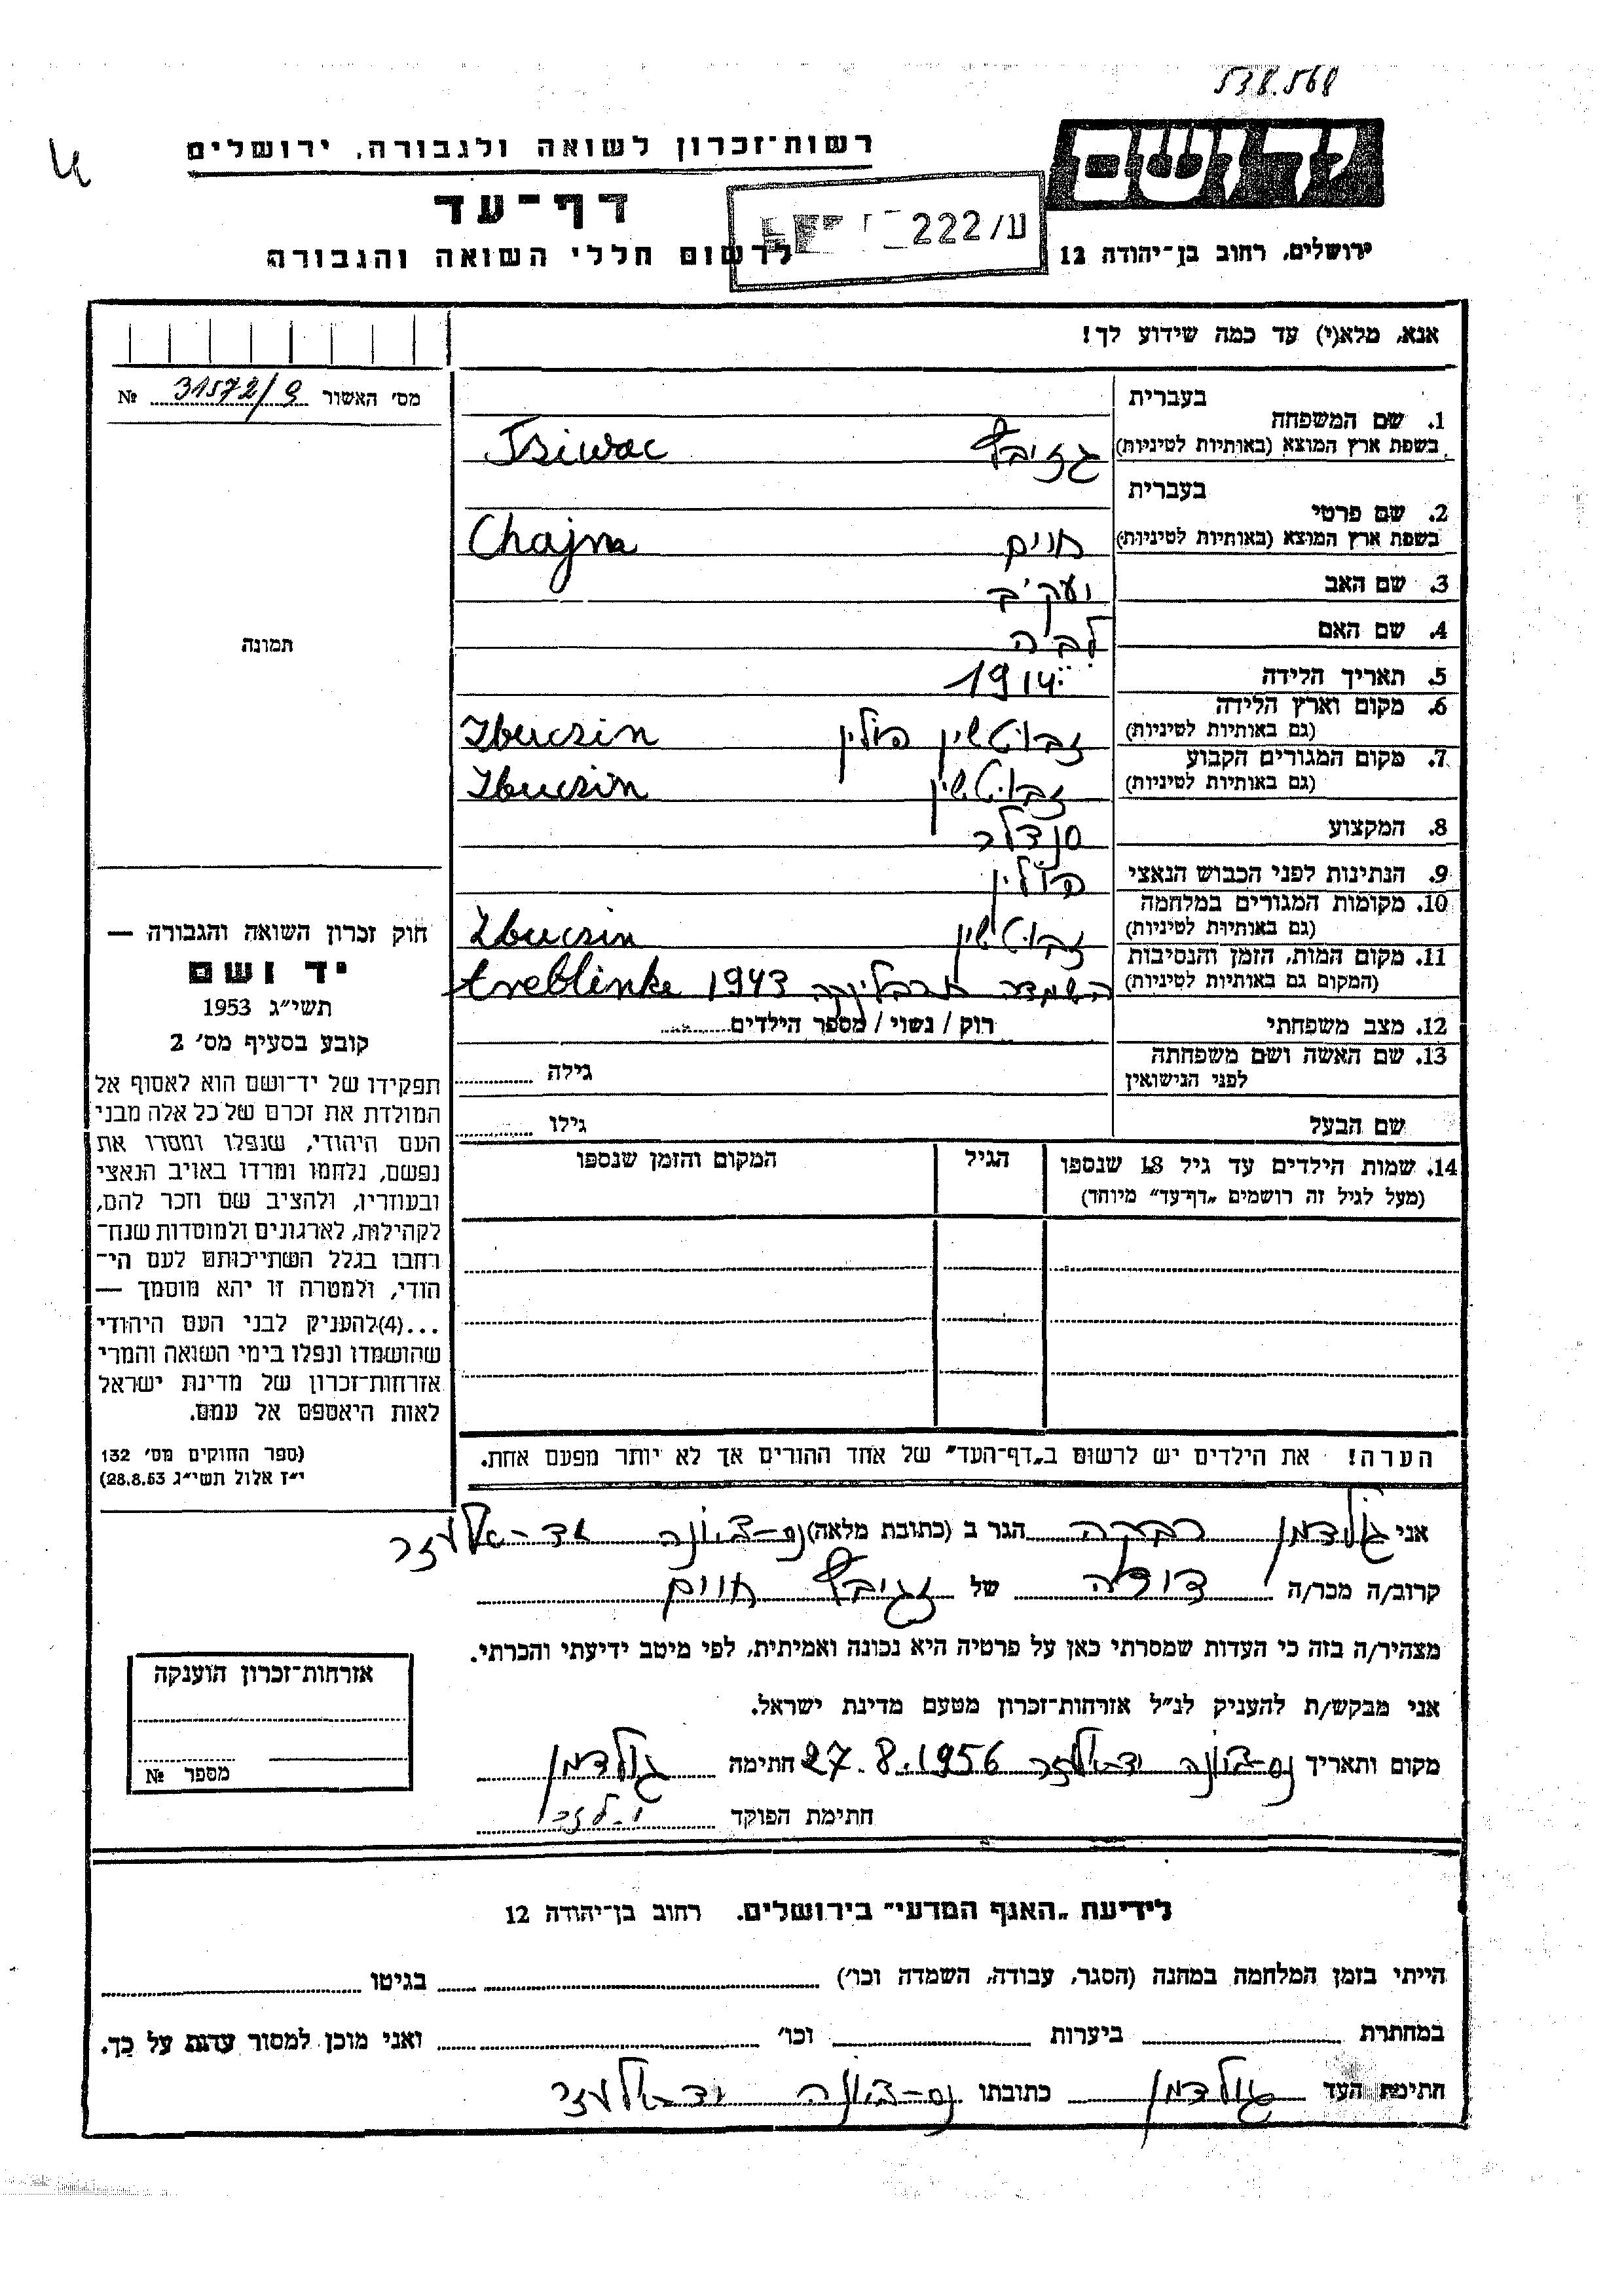 538.568
יד ושם
רשות־זכרון לשואה ולגבורה, ירושלים
דף־עד
לרשום חללי השואה והגבורה
222/ע
ירושלים, רחוב בן־יהודה 12
אנא, מלא(י) עד כמה שידוע לך!
מס׳ האשור № 31572/9
בעברית
1. שם המשפחה
בשפת ארץ המוצא (באותיות לטיניות)
בעברית
2. שם פרטי
בשפת ארץ המוצא (באותיות לטיניות) חיים Chajm
3. שם האב
4. שם האם
5. תאריך הלידה 1914
6. מקום וארץ הלידה
(גם באותיות לטיניות) זבוטשין פולין Zbuczin
7. מקום המגורים הקבוע
(גם באותיות לטיניות) זבוטשין Zbuczin
8. המקצוע סנדלר
9. הנתינות לפני הכבוש הנאצי פולין
10. מקומות המגורים במלחמה
(גם באותיות לטיניות) זבוטשין Zbuczin
11. מקום המות, הזמן והנסיבות
(המקום גם באותיות לטיניות) השמדה טרבלינקה 1943 treblinke
12. מצב משפחתי רוק / נשוי / מספר הילדים
13. שם האשה ושם משפחתה
לפני הנישואין גילה
שם הבעל גילו
תמונה
14. שמות הילדים עד גיל 18 שנספו הגיל המקום והזמן שנספו
(מעל לגיל זה רושמים „דף־עד” מיוחד)
חוק זכרון השואה והגבורה —
יד ושם
תשי״ג 1953
קובע בסעיף מס׳ 2
תפקידו של יד־ושם הוא לאסוף אל
המולדת את זכרם של כל אלה מבני
העם היהודי, שנפלו ומסרו את
נפשם, נלחמו ומרדו באויב הנאצי
ובעוזריו, ולהציב שם וזכר להם,
לקהילות, לארגונים ולמוסדות שנח־
רבו בגלל השתייכותם לעם הי־
הודי, ולמטרה זו יהא מוסמך —
...(4)להעניק לבני העם היהודי
שהושמדו ונפלו בימי השואה והמרי
אזרחות־זכרון של מדינת ישראל
לאות היאספם אל עמם.
(ספר החוקים מס׳ 132
י״ז אלול תשי״ג 28.8.53)
הערה! את הילדים יש לרשום ב„דף־העד” של אחד ההורים אך לא יותר מפעם אחת.
אני גולדמן רבקה הגר ב (כתובת מלאה) נס-ציונה יד-אלעזר
קרוב/ה מכר/ה דודה של חיים
מצהיר/ה בזה כי העדות שמסרתי כאן על פרטיה היא נכונה ואמיתית, לפי מיטב ידיעתי והכרתי.
אני מבקש/ת להעניק לנ״ל אזרחות־זכרון מטעם מדינת ישראל.
מקום ותאריך נס-ציונה יד-אלעזר 27.8.1956 חתימה גולדמן
חתימת הפוקד
אזרחות־זכרון הוענקה
מספר №
לידיעת „האגף המדעי” בירושלים. רחוב בן־יהודה 12
הייתי בזמן המלחמה במחנה (הסגר, עבודה, השמדה וכו׳) בגיטו
במחתרת ביערות וכו׳ ואני מוכן למסור עדות על כך.
חתימת העד גולדמן כתובתו נס-ציונה יד-אלעזר